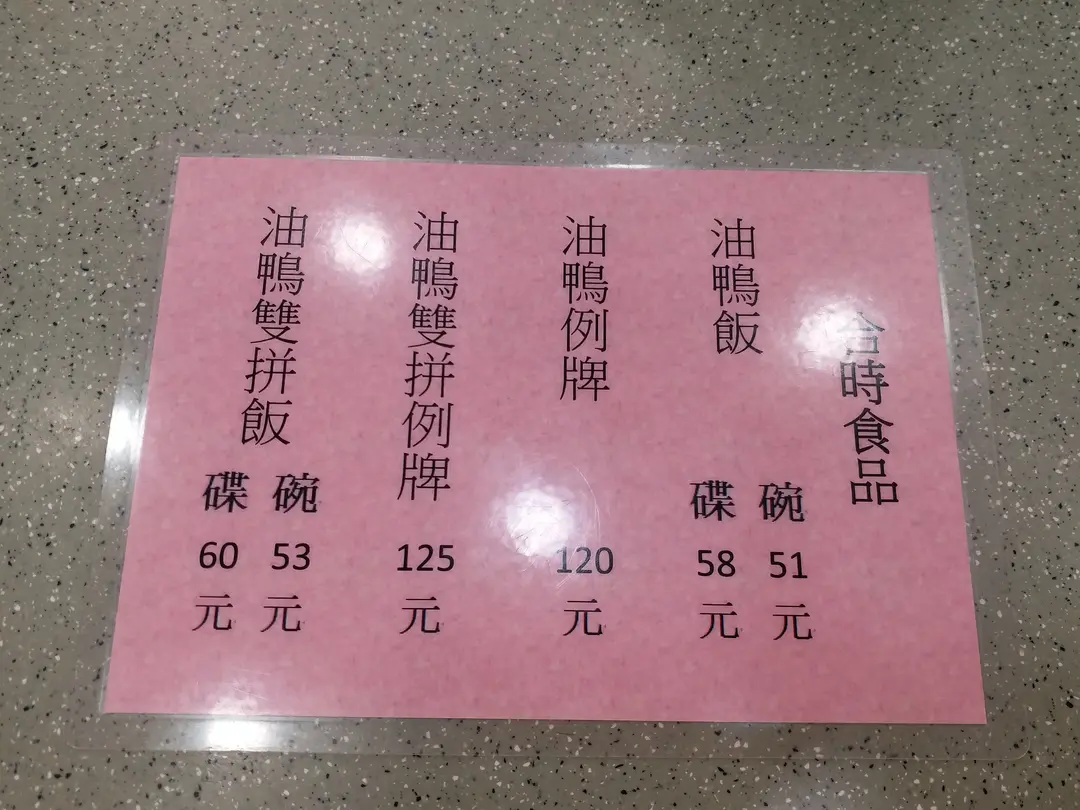 合時食品
油鴨飯
碗 51 元
碟 58 元
油鴨例牌 120 元
油鴨雙拼例牌 125 元
油鴨雙拼飯
碗 53 元
碟 60 元